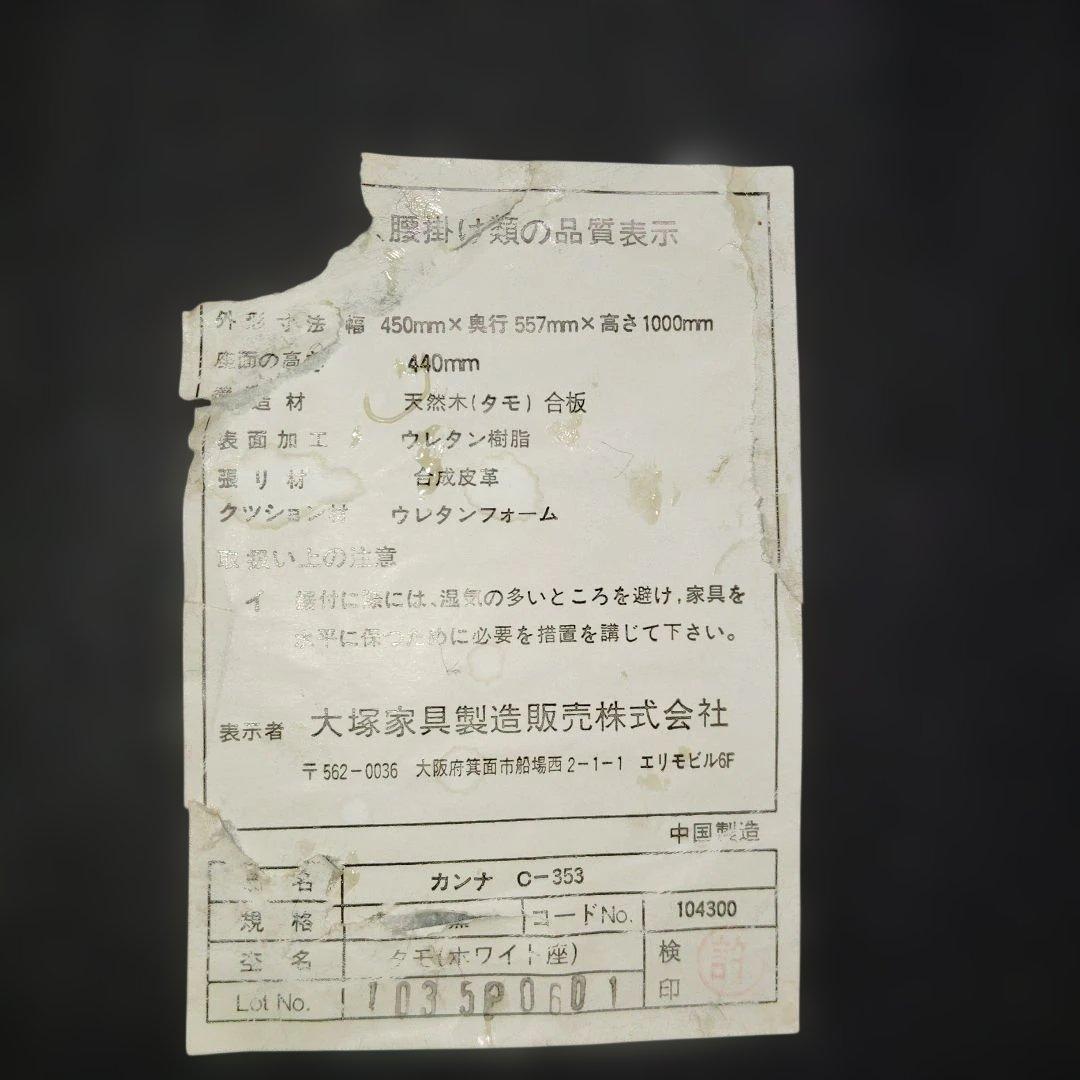 、腰掛け類の品質表示
外形寸法 幅 450mm×奥行557mm×高さ1000mm
座面の高さ 440mm
造材 天然木(タモ)合板
表面加工 ウレタン樹脂
張り材 合成皮革
クッション材 ウレタンフォーム
取扱い上の注意
イ 据付に際には、湿気の多いところを避け,家具を
水平に保つために必要を措置を講じて下さい。
表示者 大塚家具製造販売株式会社
〒562-0036 大阪府箕面市船場西2-1-1 エリモビル6F
中国製造
名 カンナ C-353
規格 コードNo. 104300
名 タモ(ホワイト座) 検印
Lot No.